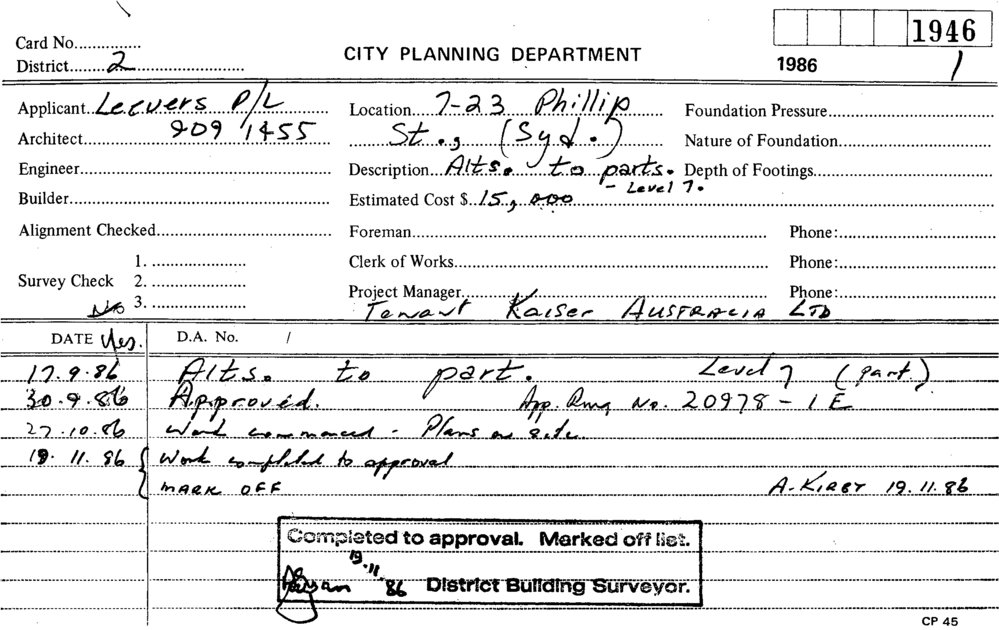 1946
Card No...............
CITY PLANNING DEPARTMENT
District........2
1986 1
Applicant. Leevers P/L Location. 7-23 Phillip Foundation Pressure
Architect 909 1455 St., (Syd.) Nature of Foundation
Engineer Description Alts. to parts. Depth of Footings
- Level 7.
Builder Estimated Cost $ 15,000
Alignment Checked Foreman Phone:
1. Clerk of Works Phone:
Survey Check 2.
No 3. Project Manager Phone:
Tenant Kaiser AUSTRALIA LTD
DATE Yes. D.A. No. /
17.9.86 Alts. to part. Level 7 (part.)
30.9.86 Approved. App. Rmq No. 20978 - 1E
27.10.86 Work commenced - Plans on site
19.11.86 Work completed to approval
MARK OFF A. KIRBY 19.11.86
Completed to approval. Marked off list.
19.11.86 District Building Surveyor.
CP 45